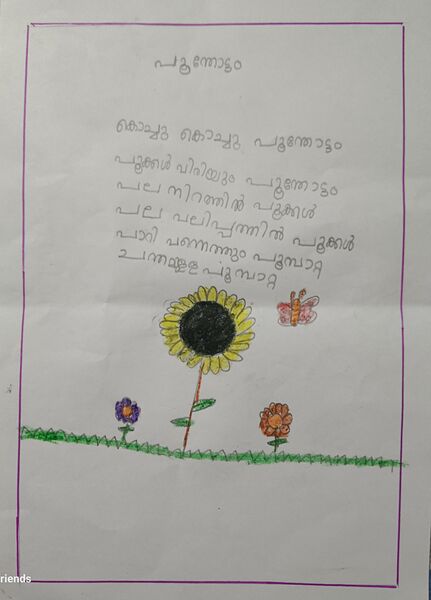 പൂന്തോട്ടം
കൊച്ചു കൊച്ചു പൂന്തോട്ടം
പൂക്കൾ വിരിയും പൂന്തോട്ടം
പല നിറത്തിൽ പൂക്കൾ
പല വലിപ്പത്തിൽ പൂക്കൾ
പാറി വന്നെത്തും പൂമ്പാറ്റ
ചന്തമുള്ള പൂമ്പാറ്റ
riends